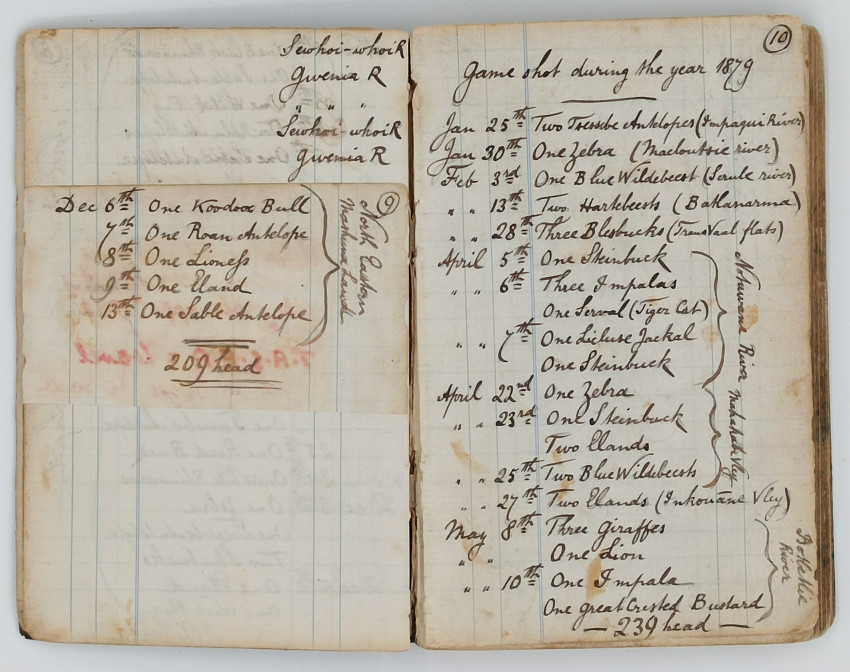 Sewhoi-whoi R
Gwenia R
" " "
Sewhoi-whoi R
Gwenia R
9
Dec 6th One Koodoo Bull
7th One Roan Antelope
8th One Lioness
9th One Eland
13th One Sable Antelope
North Eastern
Mashuna Land
209 head
10
Game shot during the year 1879
Jan 25th Two Tsessebe Antelopes (Impaqui River)
Jan 30th One Zebra (Macloutsie river)
Feb 3rd One Blue Wildebeest (Serule river)
" " 13th Two Hartebeests (Batlanarma)
" " 28th Three Blesbucks (TransVaal flats)
April 5th One Steinbuck
" " 6th Three Impalas
One Serval (Tiger Cat)
" " 7th One Jackal
One Steinbuck
April 22nd One Zebra
" " 23rd One Steinbuck
Two Elands
" " 25th Two Blue Wildebeests
Notuwane River
Vley
" " 27th Two Elands (Inkouane Vley)
May 8th Three Giraffes
" " One Lion
" " 10th One Impala
One great Crested Bustard
River
— 239 head —